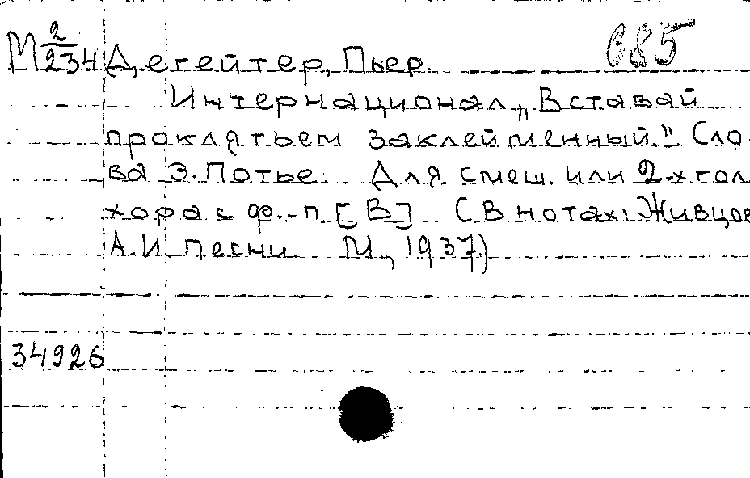 М 2/234 Дегейтер, Пьер. 685
Интернационал „Вставай
проклятьем заклейменный." Сло-
ва Э. Потье. Для смеш. или 2-х гол.
хора с ф.-п. [В] (В нотах: Живцов
А.И. Песни М., 1937)
34926